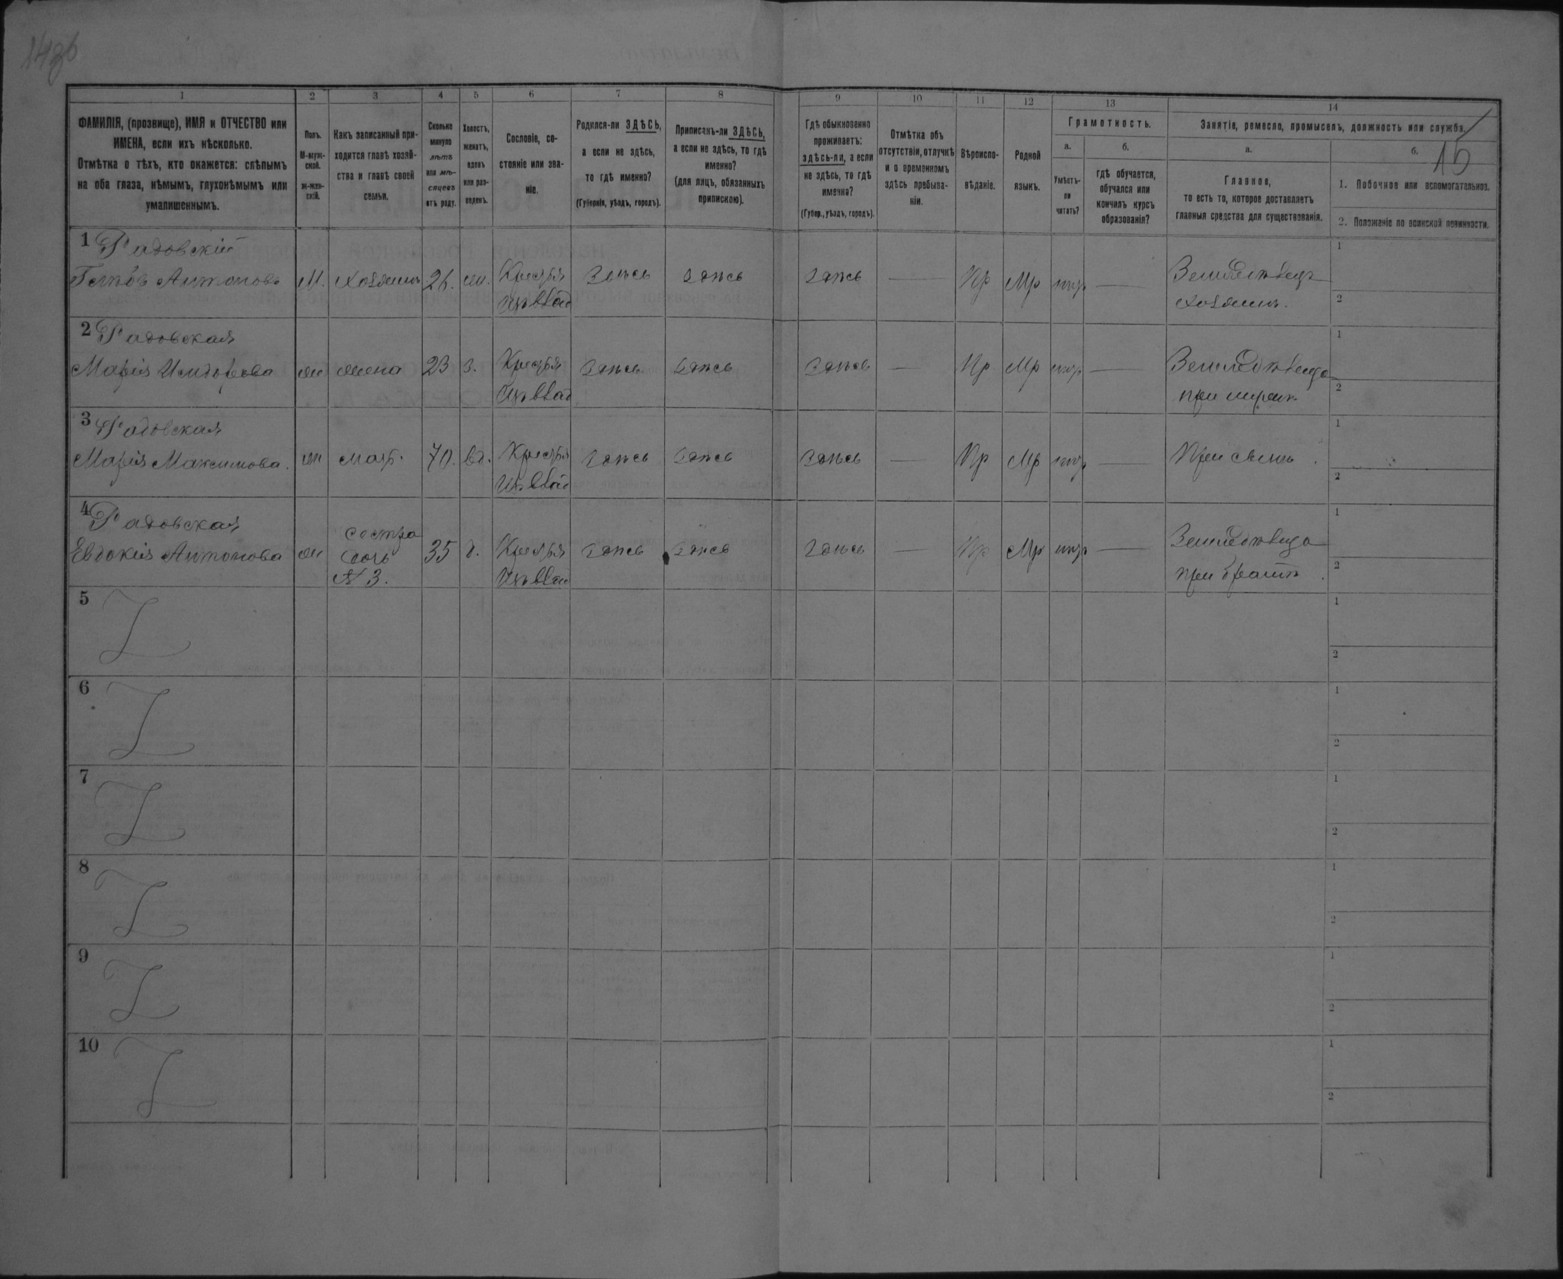 1 2 3 4 5 6 7 8 9 10 11 12 13 14
ФАМИЛІЯ, (прозвище), ИМЯ и ОТЧЕСТВО или
ИМЕНА, если ихъ нѣсколько.
Отмѣтка о тѣхъ, кто окажется: слѣпымъ
на оба глаза, нѣмымъ, глухонѣмымъ или
умалишеннымъ.
Полъ.
М-муж-
ской.
ж-жен-
скій.
Какъ записанный при-
ходится главѣ хозяй-
ства и главѣ своей
семьи.
Сколько
минуло
лѣтъ
или мѣ-
сяцевъ
отъ роду.
Холостъ,
женатъ,
вдовъ
или раз-
веденъ.
Сословіе, со-
стояніе или зва-
ніе.
Родился-ли ЗДѢСЬ,
а если не здѣсь,
то гдѣ именно?
(Губернія, уѣздъ, городъ).
Приписанъ-ли ЗДѢСЬ,
а если не здѣсь, то гдѣ
именно?
(для лицъ, обязанныхъ
припискою).
Гдѣ обыкновенно
проживаетъ:
здѣсь-ли, а если
не здѣсь, то гдѣ
именно?
(Губер., уѣздъ, городъ).
Отмѣтка объ
отсутствіи, отлучкѣ
и о временномъ
здѣсь пребыва-
ніи.
Вѣроиспо-
вѣданіе.
Родной
языкъ.
Грамотность.
а.
Умѣетъ-
ли
читать?
б.
гдѣ обучается,
обучался или
кончилъ курсъ
образованія?
Занятіе, ремесло, промыселъ, должность или служба.
а.
Главное,
то есть то, которое доставляетъ
главныя средства для существованія.
б.
15
1. Побочное или вспомогательное.
2. Положеніе по воинской повинности.
1 Радовскій
Антоновъ М. хозяинъ 26. ж. Крестья здѣсь здѣсь здѣсь — Пр Мр нтр — Земледѣлецъ
хозяинъ.
1
2
2 Радовская
Марія Исидорова ж жена 23 з. Крестья здѣсь здѣсь здѣсь — Пр Мр нтр — Земледѣлица
при мужѣ
1
2
3 Радовская
Марія Максимова. ж мать. 70. вд. Крестья здѣсь здѣсь здѣсь — Пр Мр нтр — При сынѣ.
1
2
4 Радовская
Евдокія Антонова ж сестра
дочь
№ 3. 35 д. Крестья здѣсь здѣсь здѣсь — Пр Мр нтр — Земледѣлица
при братѣ.
1
2
5
1
2
6
1
2
7
1
2
8
1
2
9
1
2
10
1
2